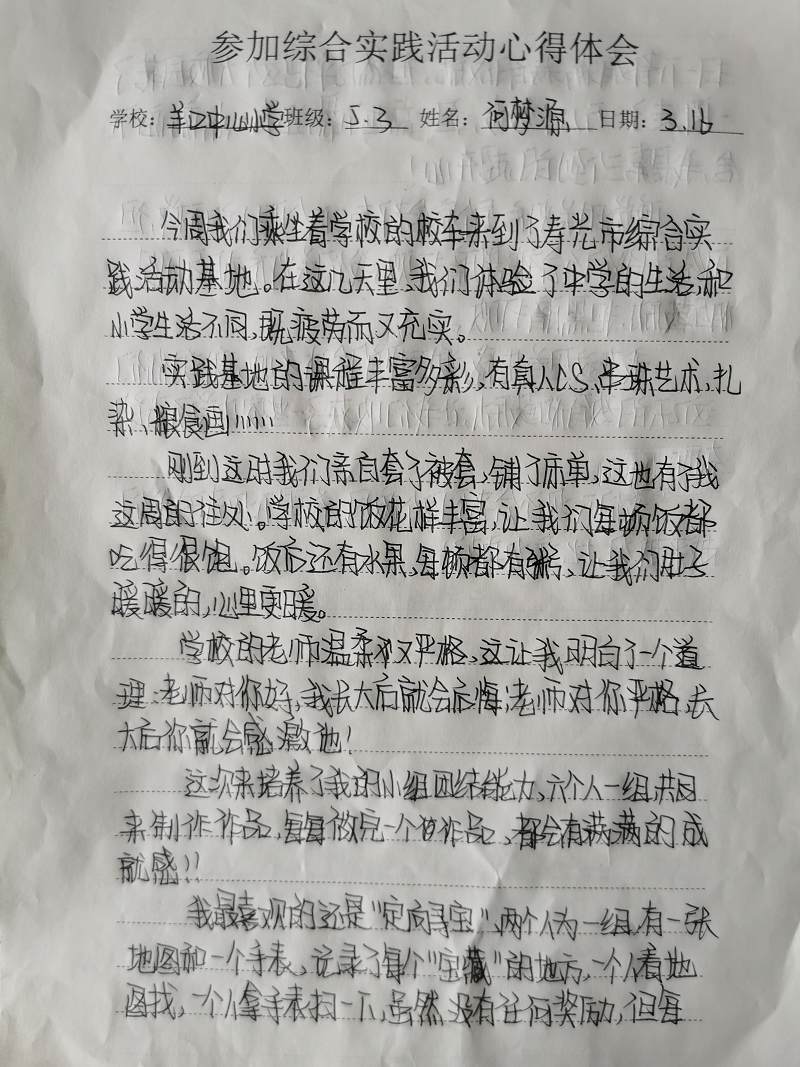 参加综合实践活动心得体会
学校：羊口中心小学班级：5.3 姓名：何梦源 日期：3.16
今周我们乘坐着学校的校车来到了寿光市综合实
践活动基地。在这几天里,我们体验了中学的生活,和
小学生活不同,既疲劳而又充实。
实践基地的课程丰富多彩,有真人CS、串珠艺术、扎
染、粮食画......
刚到这时我们亲自套了被套,铺了床单,这也有了我
这周的住处。学校的饭花样丰富,让我们每顿饭都
吃得很饱。饭后还有水果,每顿都有粥,让我们肚子
暖暖的,心里更暖。
学校的老师温柔又严格,这让我明白了一个道
理:老师对你好,我长大后就会后悔;老师对你严格,长
大后你就会感激他!
这次来培养了我的小组团结能力,六个人一组,共同
来制作作品,每每做完一个作品,都会有满满的成
就感!!
我最喜欢的还是"定向寻宝",两个人为一组,有一张
地图和一个手表,记录了每个"宝藏"的地方,一个人看地
图找,一个人拿手表扫一下,虽然没有任何奖励,但每